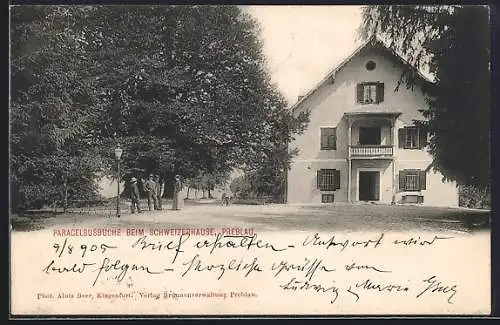 PARACELSUSBUCHE BEIM SCHWEIZERHAUSE, PREBLAU.
9/8 905 Brief erhalten – Antwort wird
bald folgen – Herzliche Grüsse von
Ludwig, Marie
Phot. Alois Beer, Klagenfurt. Verlag Brunnenverwaltung Preblau.